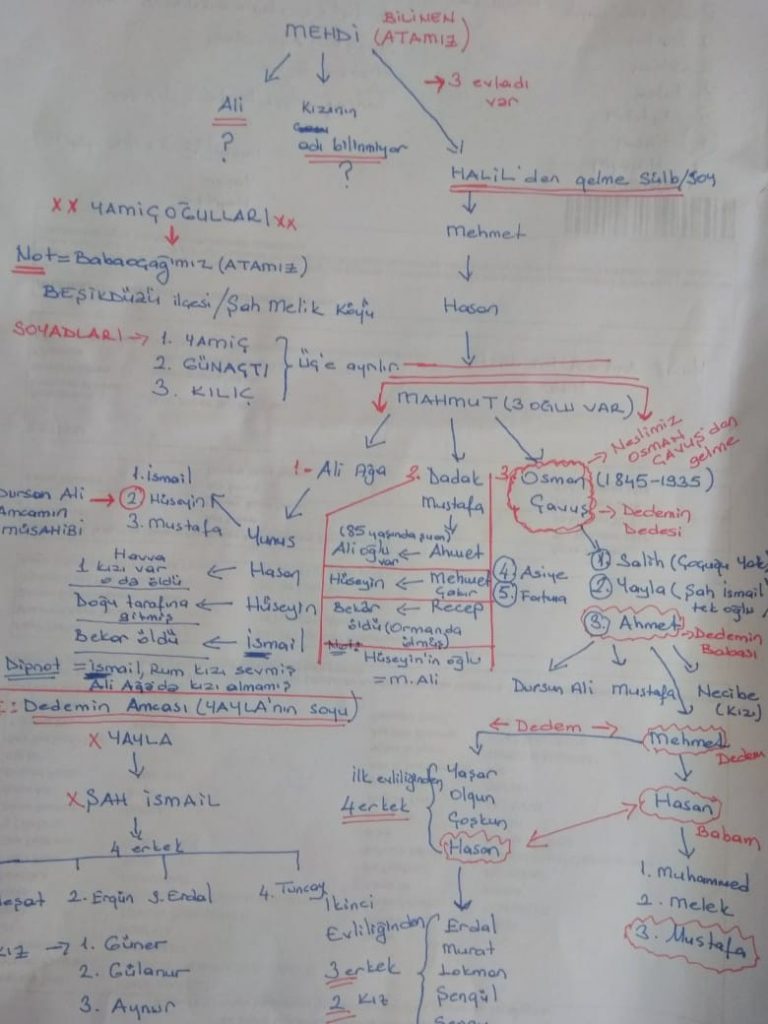 MEHDİ
BİLİNEN
(ATAMIZ)
→ 3 evladı
var
Ali
?
Kızının
adı bilinmiyor
?
HALİL'den gelme Sülb/Soy
Mehmet
Hasan
xx YAMİÇOĞULLARI xx
Not = Babaocağımız (ATAMIZ)
BEŞİKDÜZÜ ilçesi / Şah Melik Köyü
SOYADLARI → 1. YAMİÇ
2. GÜNAÇTI
3. KILIÇ
Üç'e ayrılır
MAHMUT (3 OĞLU VAR)
1- Ali Ağa
2. Dadak
Mustafa
3. Osman
Çavuş
(1845-1935)
→ Neslimiz
OSMAN
ÇAVUŞ'dan
gelme
→ Dedemin
Dedesi
Dursun Ali
Amcamın
MÜSAHİBİ
1. İsmail
2. Hüseyin
3. Mustafa
Yunus
Havva
1 kızı var
o da öldü
← Hasan
Doğu tarafına
gitmiş
← Hüseyin
Bekar öldü ← İsmail
Dipnot = İsmail, Rum kızı sevmiş
Ali Ağa'da kızı almamış
(85 yaşında
Ali oğlu
var
← Ahmet
Hüseyin ← Mehmet
Çakır
Bekâr ← Recep
öldü (Ormanda
ölmüş)
Not:
Hüseyin'in oğlu
= M. Ali
4. Asiye
5. Fatma
1. Salih (Çocuğu Yok)
2. Yayla (Şah ismail
tek oğlu
3. Ahmet
→ Dedemin
Babası
Dursun Ali
Mustafa
Necibe
(Kızı)
Mehmet
Dedem
← Dedem →
Dedemin Amcası (YAYLA'nın soyu)
x YAYLA
x ŞAH İSMAİL
4 erkek
2. Ergün
3. Erdal
4. Tuncay
→ 1. Güner
2. Gülanur
3. Aynur
İlk evliliğinden
4 erkek
Yaşar
Olgun
Coşkun
Hasan
İkinci
Evliliğinden
3 erkek
2 Kız
Erdal
Murat
Lokman
Şengül
Hasan
Babam
1. Muhammed
2. Melek
3. Mustafa